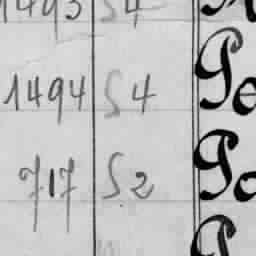 1493 S4
1494 S4 Pe
717 S2 Po